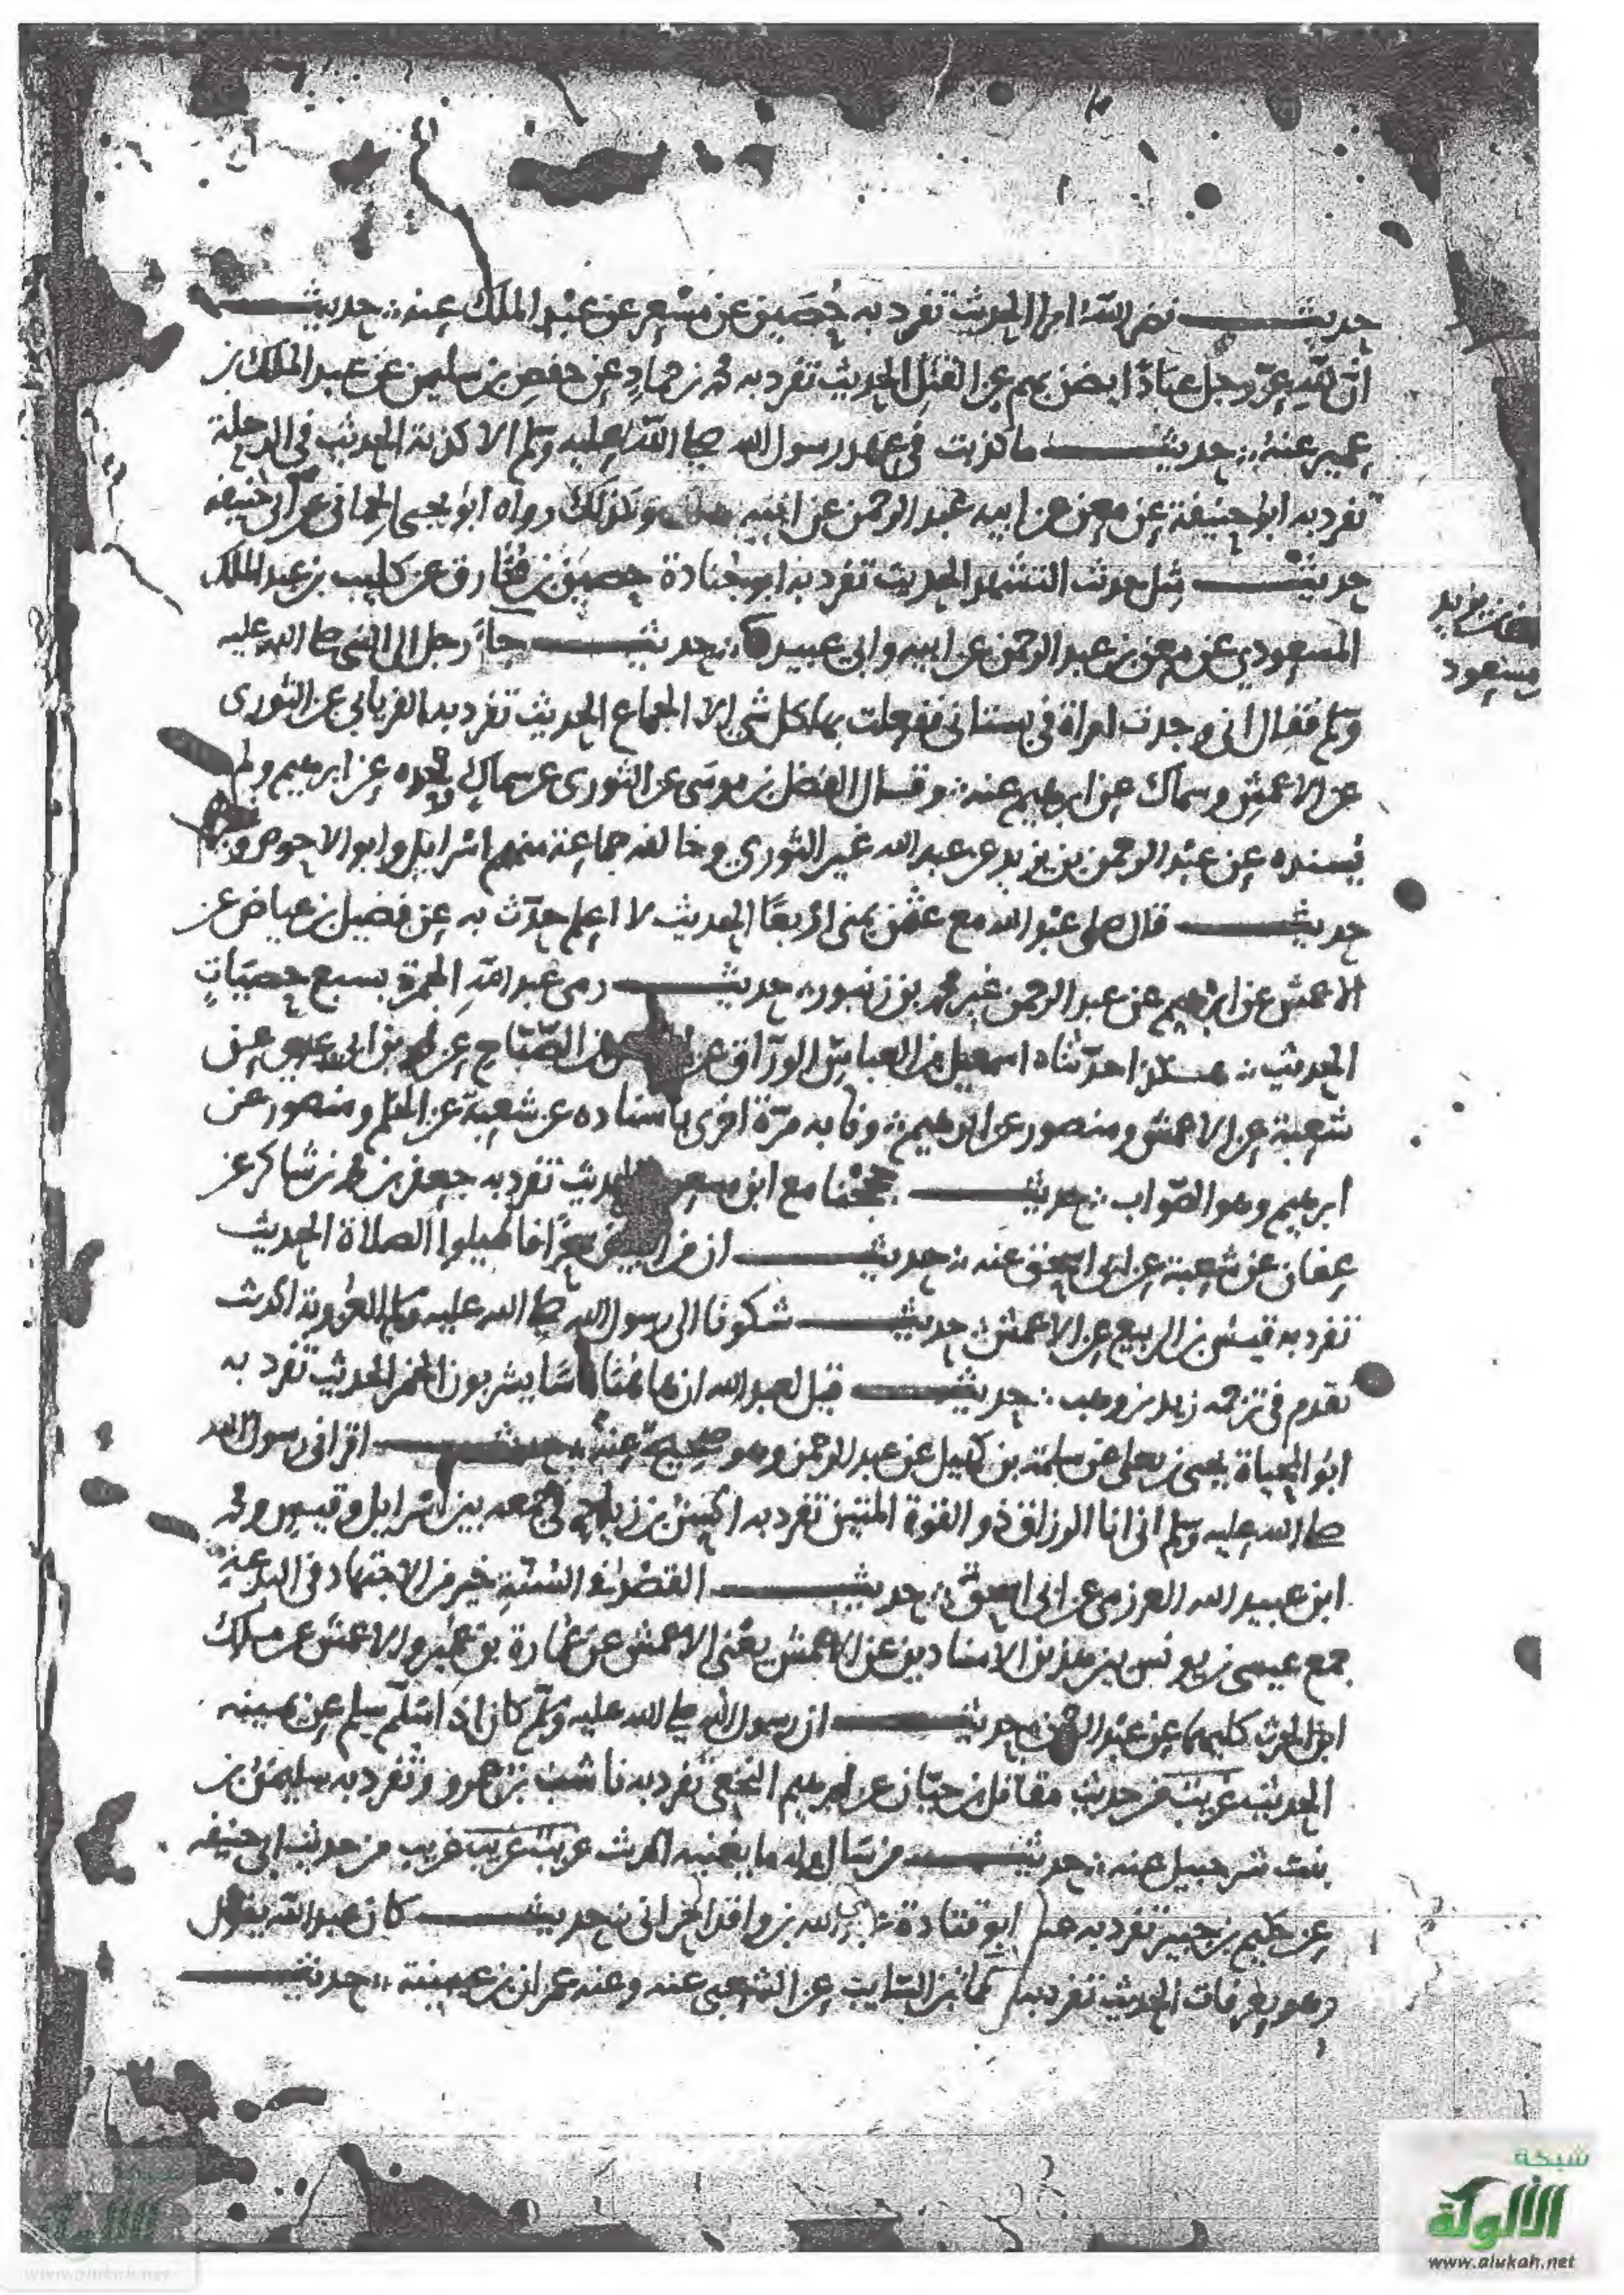 حديث نضر الله امرا الحديث تفرد به حصين عن مسعر عن عبد الملك عنه حديث
ان لله عز وجل عبادا يضن بهم عن القتل الحديث تفرد به محمد بن حماد عن حفص بن سليمن عن عبد الملك بن
عمير عنه حديث ما كذبت في عهد رسول الله صلى الله عليه وسلم الا كذبة الحديث في الرحلة
تفرد به ابو حنيفة عن معن عن ابيه عبد الرحمن عن ابيه وكذلك رواه ابو يحيى الحماني عن ابي حنيفة
حديث مثل حديث التشهد الحديث تفرد به ابو جنادة حصين بن مخارق عن كليب بن عبد الملك
المسعودي عن معن بن عبد الرحمن عن ابيه وابي عبيدة حديث جاء رجل الى النبي صلى الله عليه
وسلم فقال اني وجدت امراة في بستاني ففعلت بها كل شي الا الجماع الحديث تفرد به الفريابي عن الثوري
عن الاعمش وسماك عن ابرهيم عنه وقال الفضل بن موسى عن الثوري عن سماك وحده عن ابرهيم ولم
يسنده عن عبد الرحمن بن يزيد عن عبد الله غير الثوري وخالفه جماعة منهم اسرايل وابو الاحوص
حديث قال صلى عبد الله مع عثمن بمنى اربعا الحديث لا اعلم حدث به عن فضيل بن عياض عن
الاعمش عن ابرهيم عن عبد الرحمن غير محمد بن زنبور حديث رمى عبد الله الجمرة بسبع حصيات
الحديث هكذا حدثناه اسمعيل بن العباس الوراق عن بن الصباح عن ابن ابي عدي عن
شعبة عن الاعمش ومنصور عن ابرهيم ونا به مرة اخرى باسناده عن شعبة عن الحكم ومنصور عن
ابرهيم وهو الصواب حديث حججنا مع ابن مسعود الحديث تفرد به جعفر بن محمد بن شاكر عن
عفان عن شعبة عن ابي اسحق عنه حديث ان من البيان سحرا فاطيلوا الصلاة الحديث
تفرد به قيس بن الربيع عن الاعمش حديث شكونا الى رسول الله صلى الله عليه وسلم العزوبة الحديث
تقدم في ترجمة زيد بن وهب حديث قيل لعبد الله ان هاهنا ناسا يشربون الخمر الحديث تفرد به
ابو المحياة يحيى بن يعلى عن سلمة بن كهيل عن عبد الرحمن وهو صحيح عنه حديث اقراني رسول الله
صلى الله عليه وسلم اني انا الرزاق ذو القوة المتين تفرد به في جمعه بين اسرايل وقيس ومحمد
ابن عبيد الله العرزمي عن ابي اسحق حديث القصد في السنة خير من الاجتهاد في البدعة
جمع عيسى بن يونس بين هذين الاسنادين عن الاعمش يعني الاعمش عن عمارة بن عمير والاعمش عن ملك
ابن الحرث كليهما عن عبد الرحمن حديث ان رسول الله صلى الله عليه وسلم كان اذا سلم سلم عن يمينه
الحديث غريب من حديث مقاتل بن حيان عن ابرهيم النخعي تفرد به ناشب بن عمرو وتفرد به سليمن بن
بنت شرحبيل عنه حديث من سال وله ما يغنيه الحديث غريب غريب غريب من حديث ابي حنيفة
عن حكيم بن جبير تفرد به عنه ابو قتادة عبد الله بن واقد الحراني حديث كان عبد الله يقول
وهو بعرفات الحديث تفرد به عطا بن السايب عن الشعبي عنه وعنه عمران بن عيينة حديث
شبكة
الألوكة
www.alukah.net